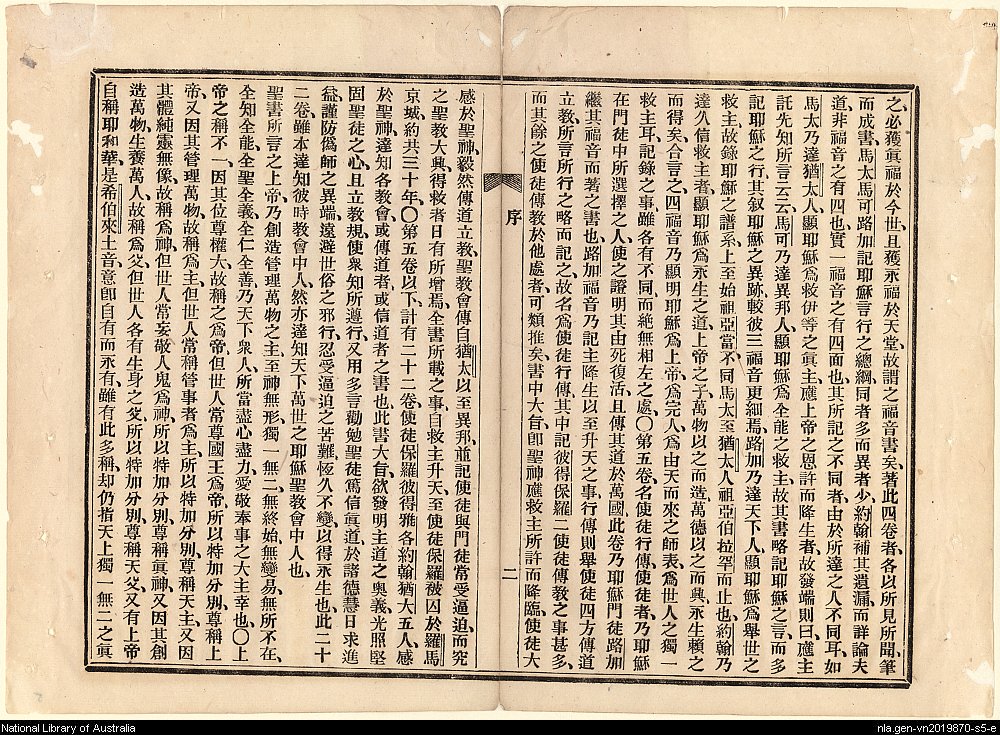 之必獲眞福於今世且獲永福於天堂故謂之福音書矣著此四卷者各以所見所聞筆
而成書馬太馬可路加記耶穌言行之總綱同者多而異者少約翰補其遺漏而詳論夫
道非福音之有四也實一福音之有四面也其所記之不同者由於所達之人不同耳如
馬太乃達猶太人顯耶穌爲救伊等之眞主應上帝之恩許而降生者故發端則曰應主
託先知所言云云馬可乃達異邦人顯耶穌爲全能之救主故其書略記耶穌之言而多
記耶穌之行其叙耶穌之異跡較彼三福音更細焉路加乃達天下人顯耶穌爲舉世之
救主故錄耶穌之譜系上至始祖亞當不同馬太至猶太人祖亞伯拉罕而止也約翰乃
達久信救主者顯耶穌爲永生之道上帝之子萬物以之而造萬德以之而興永生賴之
而得矣合言之四福音乃顯明耶穌爲上帝爲完人爲由天而來之師表爲世人之獨一
救主耳記錄之事雖各有不同而絶無相左之處〇第五卷名使徒行傳使徒者乃耶穌
在門徒中所選擇之人使之證明其由死復活且傳其道於萬國此卷乃耶穌門徒路加
繼其福音而著之書也路加福音乃記主降生以至升天之事行傳則舉使徒四方傳道
立教所言所行之略而記之故名爲使徒行傳其中記彼得保羅二使徒傳教之事甚多
而其餘之使徒傳教於他處者可類推矣書中大旨卽聖神應救主所許而降臨使徒大
序
二
感於聖神毅然傳道立教聖教會傳自猶太以至異邦並記使徒與門徒常受逼迫而究
之聖教大興得救者日有所增焉全書所載之事自救主升天至使徒保羅被囚於羅馬
京城約共三十年〇第五卷以下計有二十二卷使徒保羅彼得雅各約翰猶大五人感
於聖神達知各教會或傳道者或信道者之書也此書大旨欲發明主道之奧義光照堅
固聖徒之心且立教規使衆知所遵行又用多言勸勉聖徒篤信眞道於諸德慧日求進
益謹防僞師之異端遠避世俗之邪行忍受逼迫之苦難恆久不變以得永生也此二十
二卷雖本達知彼時教會中人然亦達知天下萬世之耶穌聖教會中人也
聖書所言之上帝乃創造管理萬物之主至神無形獨一無二無終始無變易無所不在
全知全能全聖全義全仁全善乃天下衆人所當盡心盡力愛敬奉事之大主宰也〇上
帝之稱不一因其位尊權大故稱之爲帝但世人常尊國王爲帝所以特加分別尊稱上
帝又因其管理萬物故稱爲主但世人常稱管事者爲主所以特加分別尊稱天主又因
其體純靈無像故稱爲神但世人常妄敬人鬼爲神所以特加分別尊稱眞神又因其創
造萬物生養萬人故稱爲父但世人各有生身之父所以特加分別尊稱天父又有上帝
自稱耶和華是希伯來土音意卽自有而永有雖有此多稱却仍指天上獨一無二之眞
National Library of Australia
nla.gen-vn2019870-s5-e